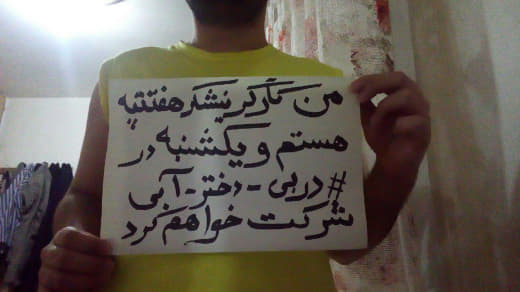 من کارگر نیشکر هفتتپه
هستم و یکشنبه در
#دربی-دختر-آبی
شرکت خواهم کرد